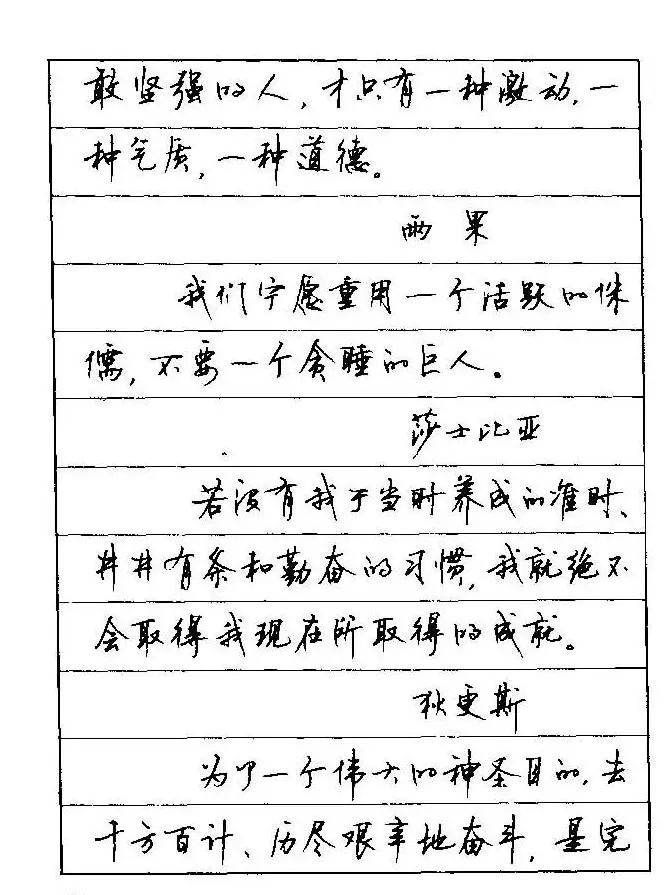 敢坚强的人，才只有一种激动，一
种气质，一种道德。
雨果
我们宁愿重用一个活跃的侏
儒，不要一个贪睡的巨人。
莎士比亚
若没有我于当时养成的准时、
井井有条和勤奋的习惯，我就绝不
会取得我现在所取得的成就。
狄更斯
为了一个伟大的神圣目的，去
千方百计、历尽艰辛地奋斗，是完